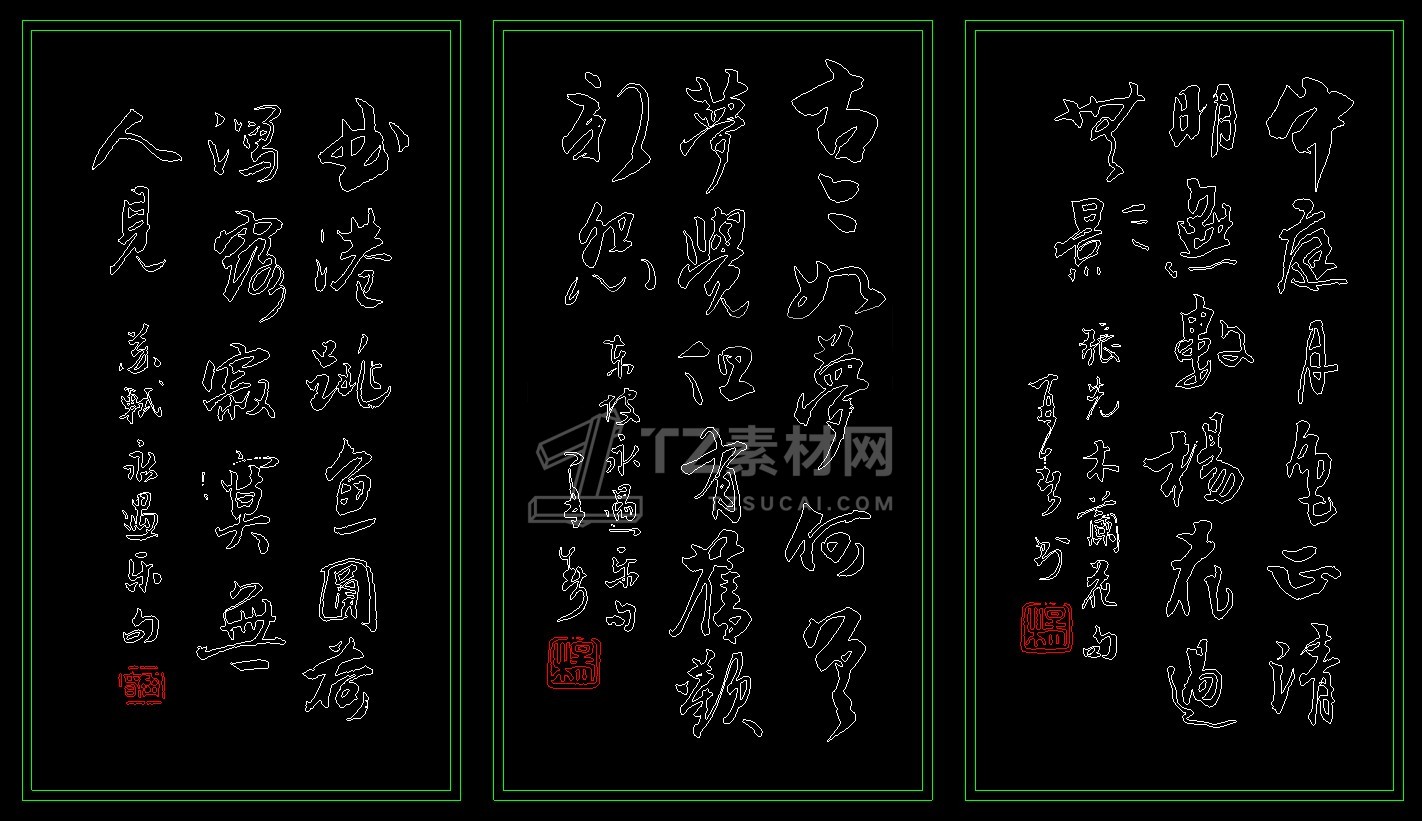 中庭月色正清
明無數楊花過
無影
張先木蘭花句
古今如夢何曾
夢覺但有舊歡
新怨
东坡永遇乐句
曲港跳鱼圓荷
瀉露寂寞無
人見
苏軾永遇乐句
TZ素材网
TZSUCAI.COM